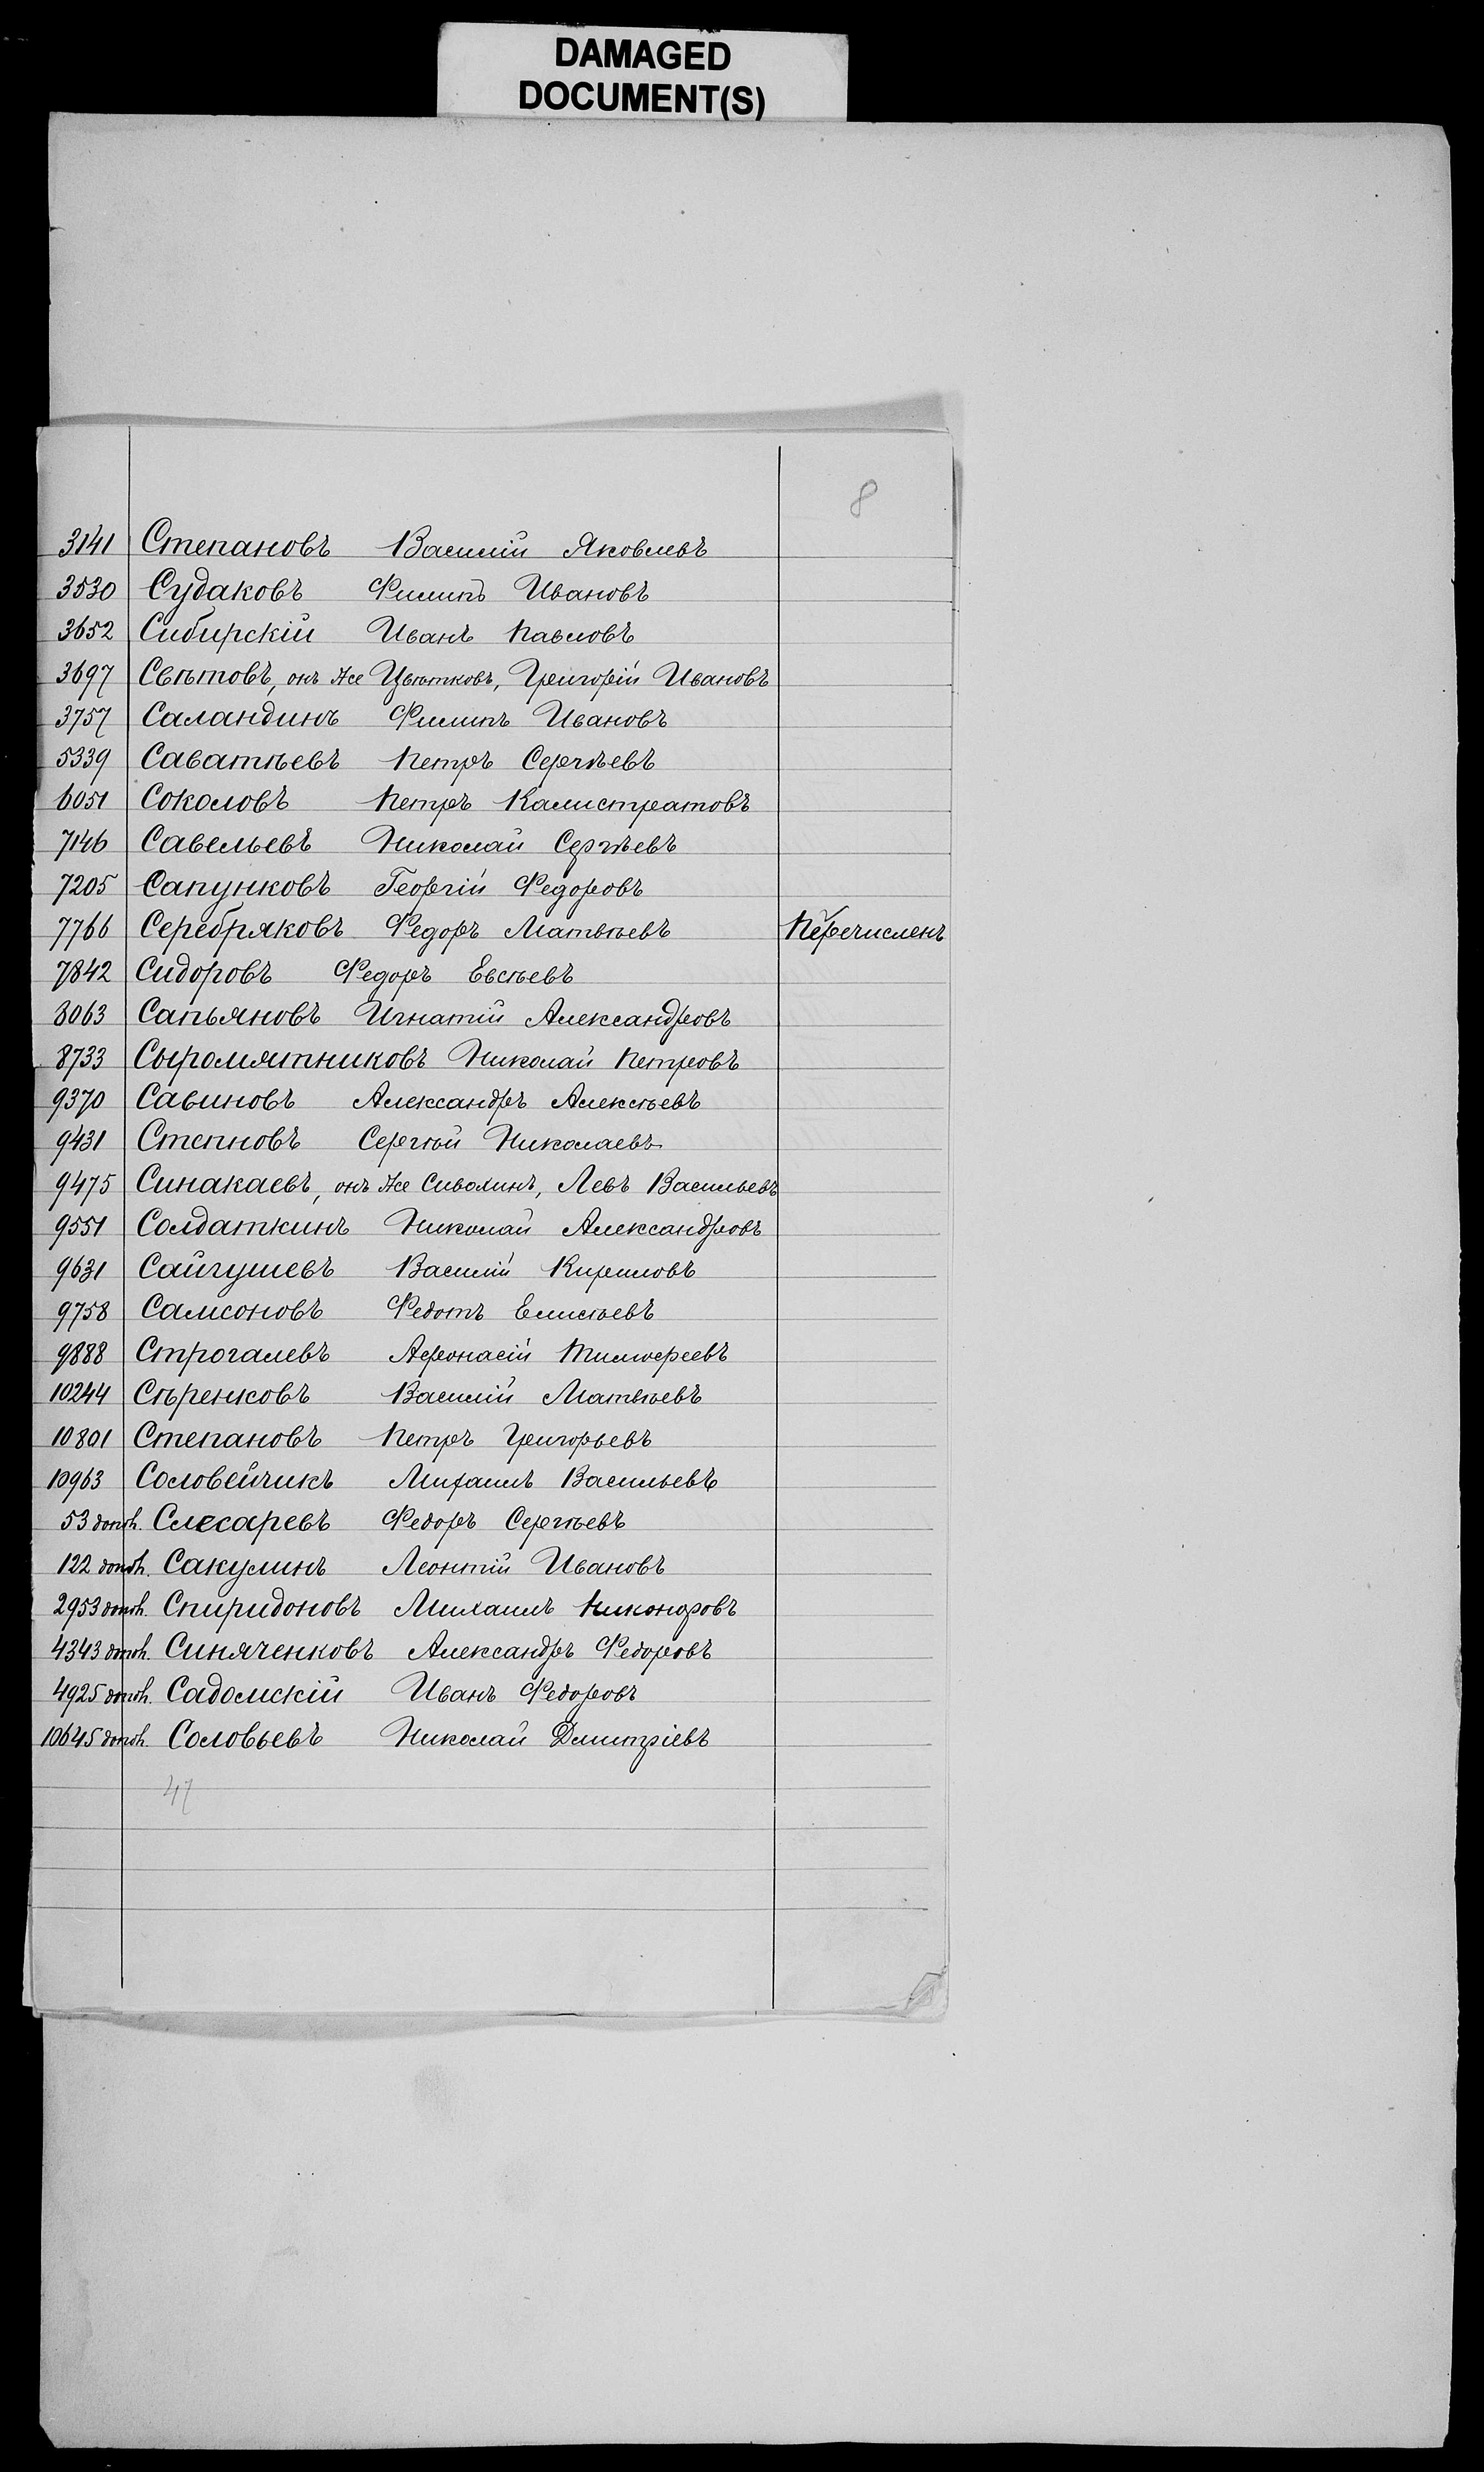 DAMAGED
DOCUMENT(S)
8
3141 Степановъ Василій Яковлевъ
3530 Судаковъ Филипъ Ивановъ
3652 Сибирскій Иванъ Павловъ
3697 Свѣтовъ, онъ же Цвѣтковъ, Григорій Ивановъ
3757 Саландинъ Филипъ Ивановъ
5339 Саватѣевъ Петръ Сергѣевъ
6051 Соколовъ Петръ Калистратовъ
7146 Савельевъ Николай Сергѣевъ
7205 Сапунковъ Георгій Федоровъ
7766 Серебряковъ Федоръ Матвѣевъ Перечисленъ
7842 Сидоровъ Федоръ Евсѣевъ
8063 Сапьяновъ Игнатій Александровъ
8733 Сыромятниковъ Николай Петровъ
9370 Савиновъ Александръ Алексѣевъ
9431 Степновъ Сергѣй Николаевъ
9475 Синакаевъ, онъ же Сиволинъ, Левъ Васильевъ
9551 Солдаткинъ Николай Александровъ
9631 Сайгушевъ Василій Кириловъ
9758 Самсоновъ Федотъ Елисѣевъ
9888 Строгалевъ Афонасій Тимофеевъ
10244 Сѣренковъ Василій Матвѣевъ
10801 Степановъ Петръ Григорьевъ
10963 Соловейчикъ Михаилъ Васильевъ
53 доп. Слесаревъ Федоръ Сергѣевъ
122 доп. Сакулинъ Леонтій Ивановъ
2953 доп. Спиридоновъ Михаилъ Никоноровъ
4343 доп. Синяченковъ Александръ Федоровъ
4925 доп. Садомскій Иванъ Федоровъ
10645 доп. Соловьевъ Николай Дмитріевъ
47